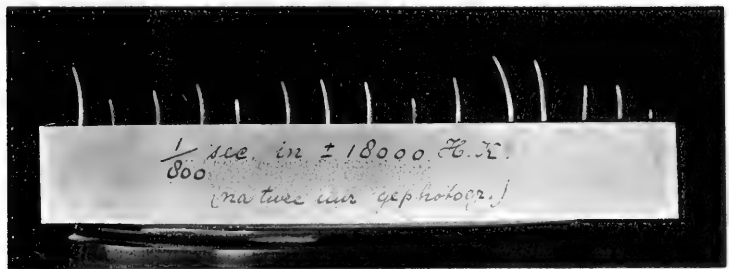 1/800 sec. in ± 18000 H.K.
(na twee uur gephotogr.)